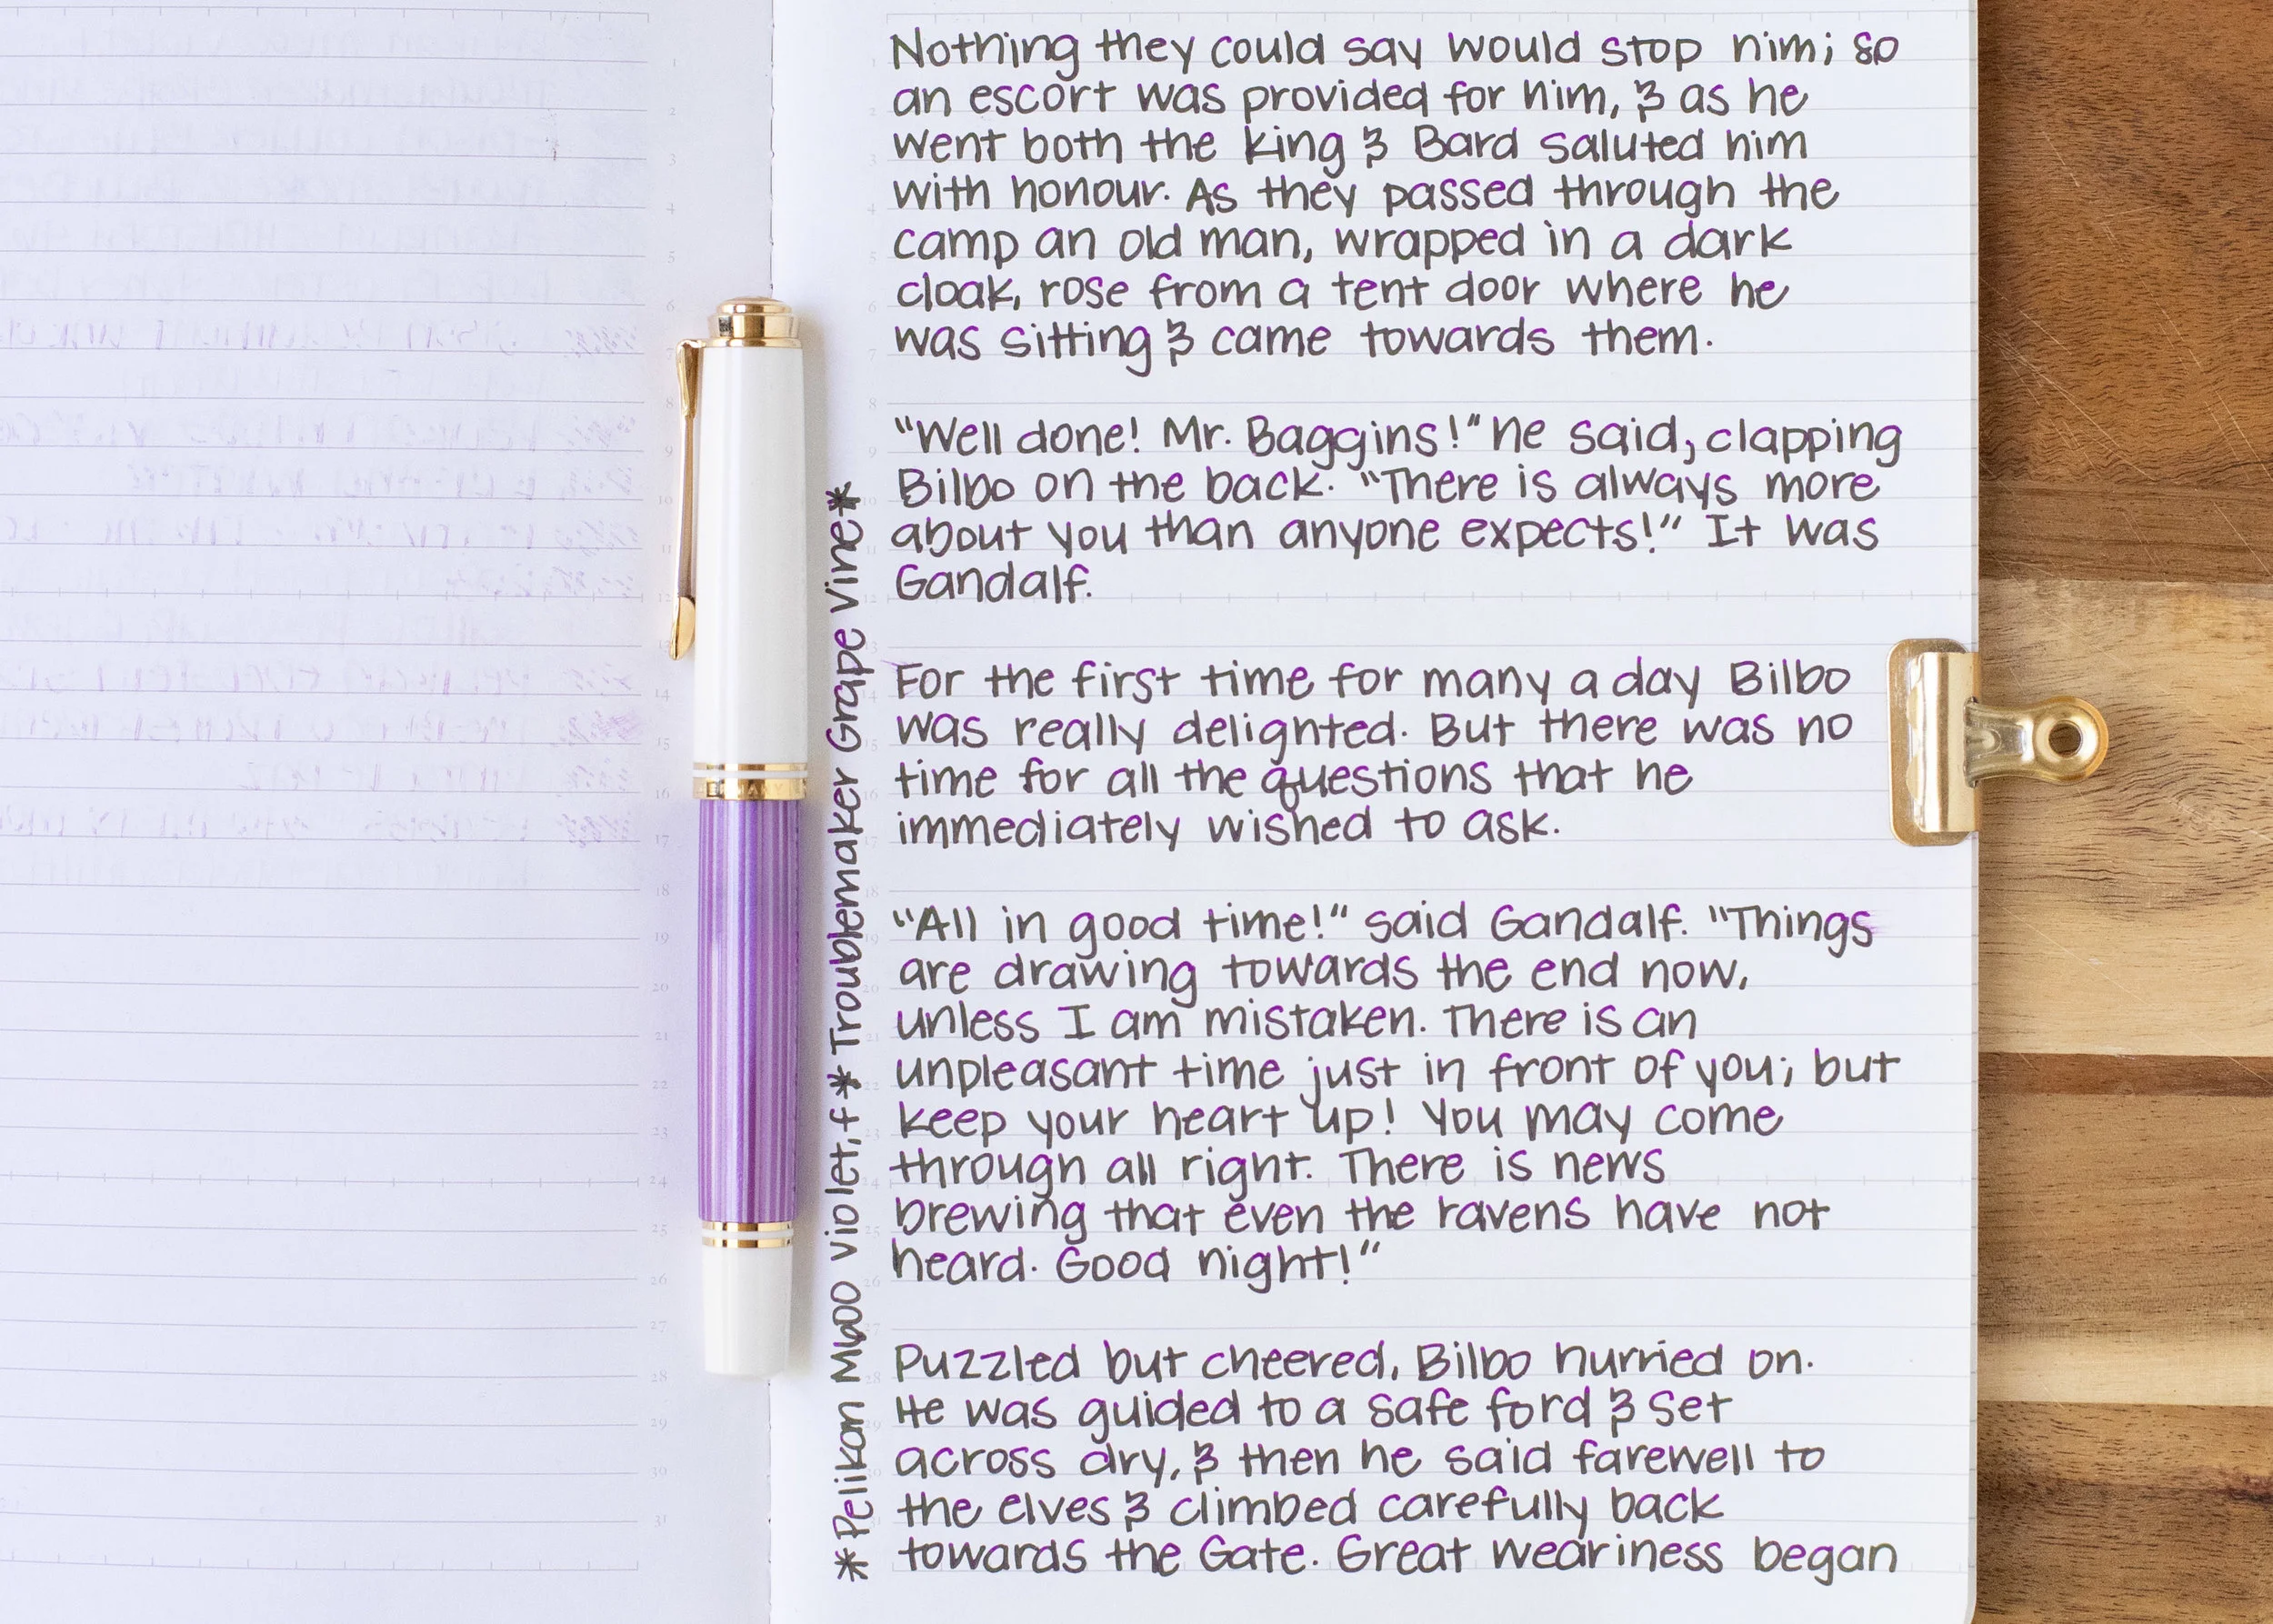 Nothing they could say would stop him; so
an escort was provided for him, & as he
went both the king & Bard saluted him
with honour. As they passed through the
camp an old man, wrapped in a dark
cloak, rose from a tent door where he
was sitting & came towards them.
"Well done! Mr. Baggins!" he said, clapping
Bilbo on the back. "There is always more
about you than anyone expects!" It was
Gandalf.
For the first time for many a day Bilbo
was really delighted. But there was no
time for all the questions that he
immediately wished to ask.
"All in good time!" said Gandalf. "Things
are drawing towards the end now,
unless I am mistaken. There is an
unpleasant time just in front of you; but
keep your heart up! You may come
through all right. There is news
brewing that even the ravens have not
heard. Good night!"
Puzzled but cheered, Bilbo hurried on.
He was guided to a safe ford & set
across dry, & then he said farewell to
the elves & climbed carefully back
towards the Gate. Great weariness began
*Pelikan M600 Violet, f * Troublemaker Grape Vine*